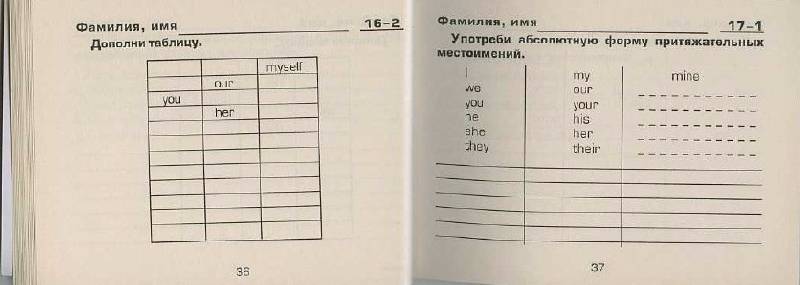 Фамилия, имя 16-2
Дополни таблицу.
myself
our
you
her
36
Фамилия, имя 17-1
Употреби абсолютную форму притяжательных
местоимений.
I my mine
we our
you your
he his
she her
they their
37